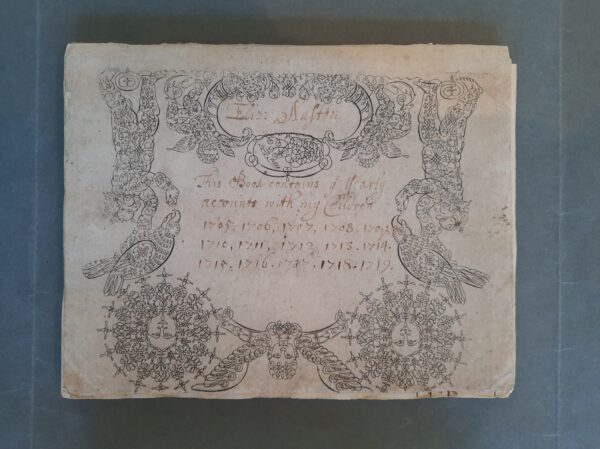 Eliz: Austen
This Book contains ye Yearly
accounts with my Children
1705, 1706, 1707, 1708, 1709
1710, 1711, 1712, 1713. 1714.
1715. 1716. 1717. 1718. 1719.